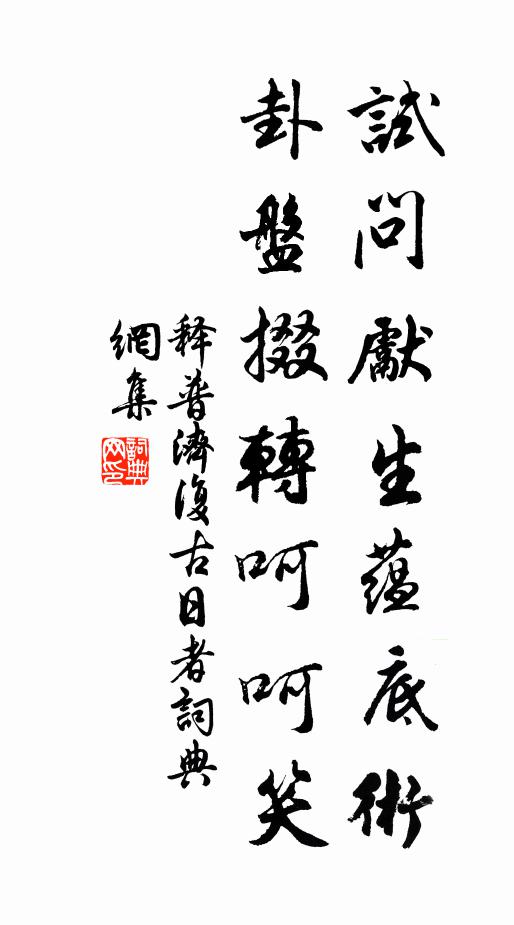 試問獻生蘊底術
卦盤掇轉呵呵笑
释普濟復古日者詞典
網集
詞典網印